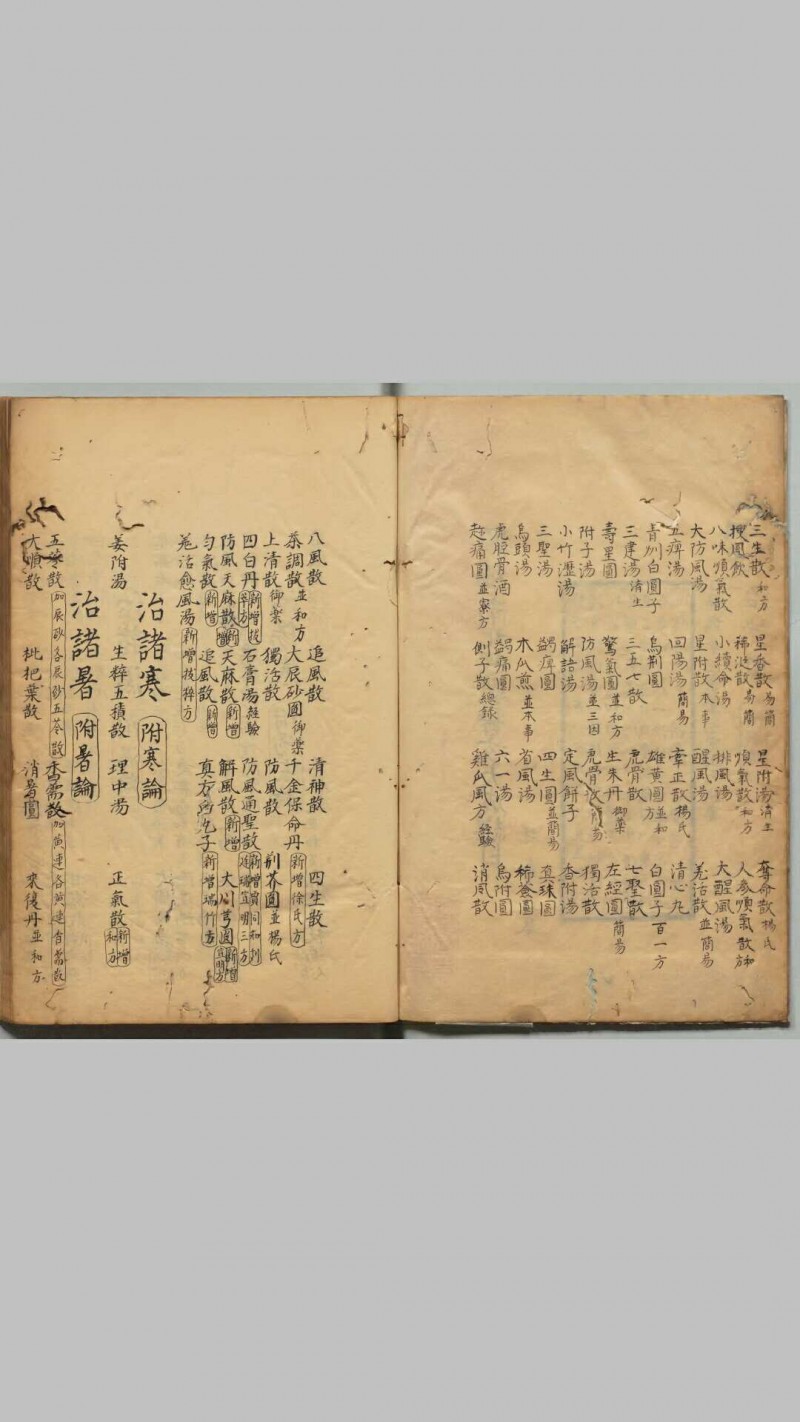 三生散 和方 星香散 易簡 星附湯 濟生 奪命散 楊氏
搜風飲 稀涎散 易簡 順氣散 和方 人參順氣散 和方
八味順氣散 小續命湯 排風湯 大醒風湯
大防風湯 星附散 本事 醒風湯 羗活散 並簡易
五痹湯 回陽湯 簡易 牽正散 楊氏 清心丸
青州白圓子 烏荊圓 雄黃圓 並和方 白圓子 百一方
三建湯 濟生 三五七散 虎骨散 七聖散
壽星圓 驚氣圓 並和方 生朱丹 御藥 左經圓 簡易
附子湯 防風湯 並三因 虎骨散 獨活散
小竹瀝湯 解語湯 定風餅子 香附湯
三聖湯 蠲痹圓 四生圓 並簡易 真珠圓
烏頭湯 木瓜煎 並本事 省風湯 稀薟圓
虎脛骨酒 蠲痛圓 六一湯 烏附圓
趂痛圓 並窠方 側子散 總錄 雞爪風方 經驗 消風散
八風散 追風散 清神散 四生散
茶調散 並和方 大辰砂圓 御藥 千金保命丹 新增徐氏方
上清散 御藥 獨活散 防風散 荊芥圓 並楊氏
四白丹 新增拔萃方 石膏湯 經驗 防風通聖散
防風天麻散 新增 天麻散 新增 解風散 新增 大川芎圓 新增宣明方
勻氣散 新增 追風散 新增 新增瑞竹方
羗活愈風湯 新增拔粹方
治諸寒 附寒論
姜附湯 生粹五積散 理中湯 正氣散 新增和方
治諸暑 附暑論
五苓散 加辰砂名辰砂五苓散 香薷散 加黃連名黃連香薷散
大順散 枇把葉散 消暑圓 來復丹 並和方